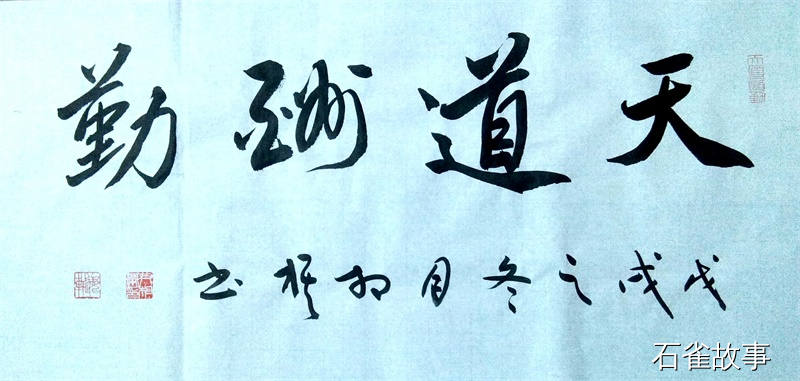 天道酬勤
戊戌之冬月 书
石雀故事